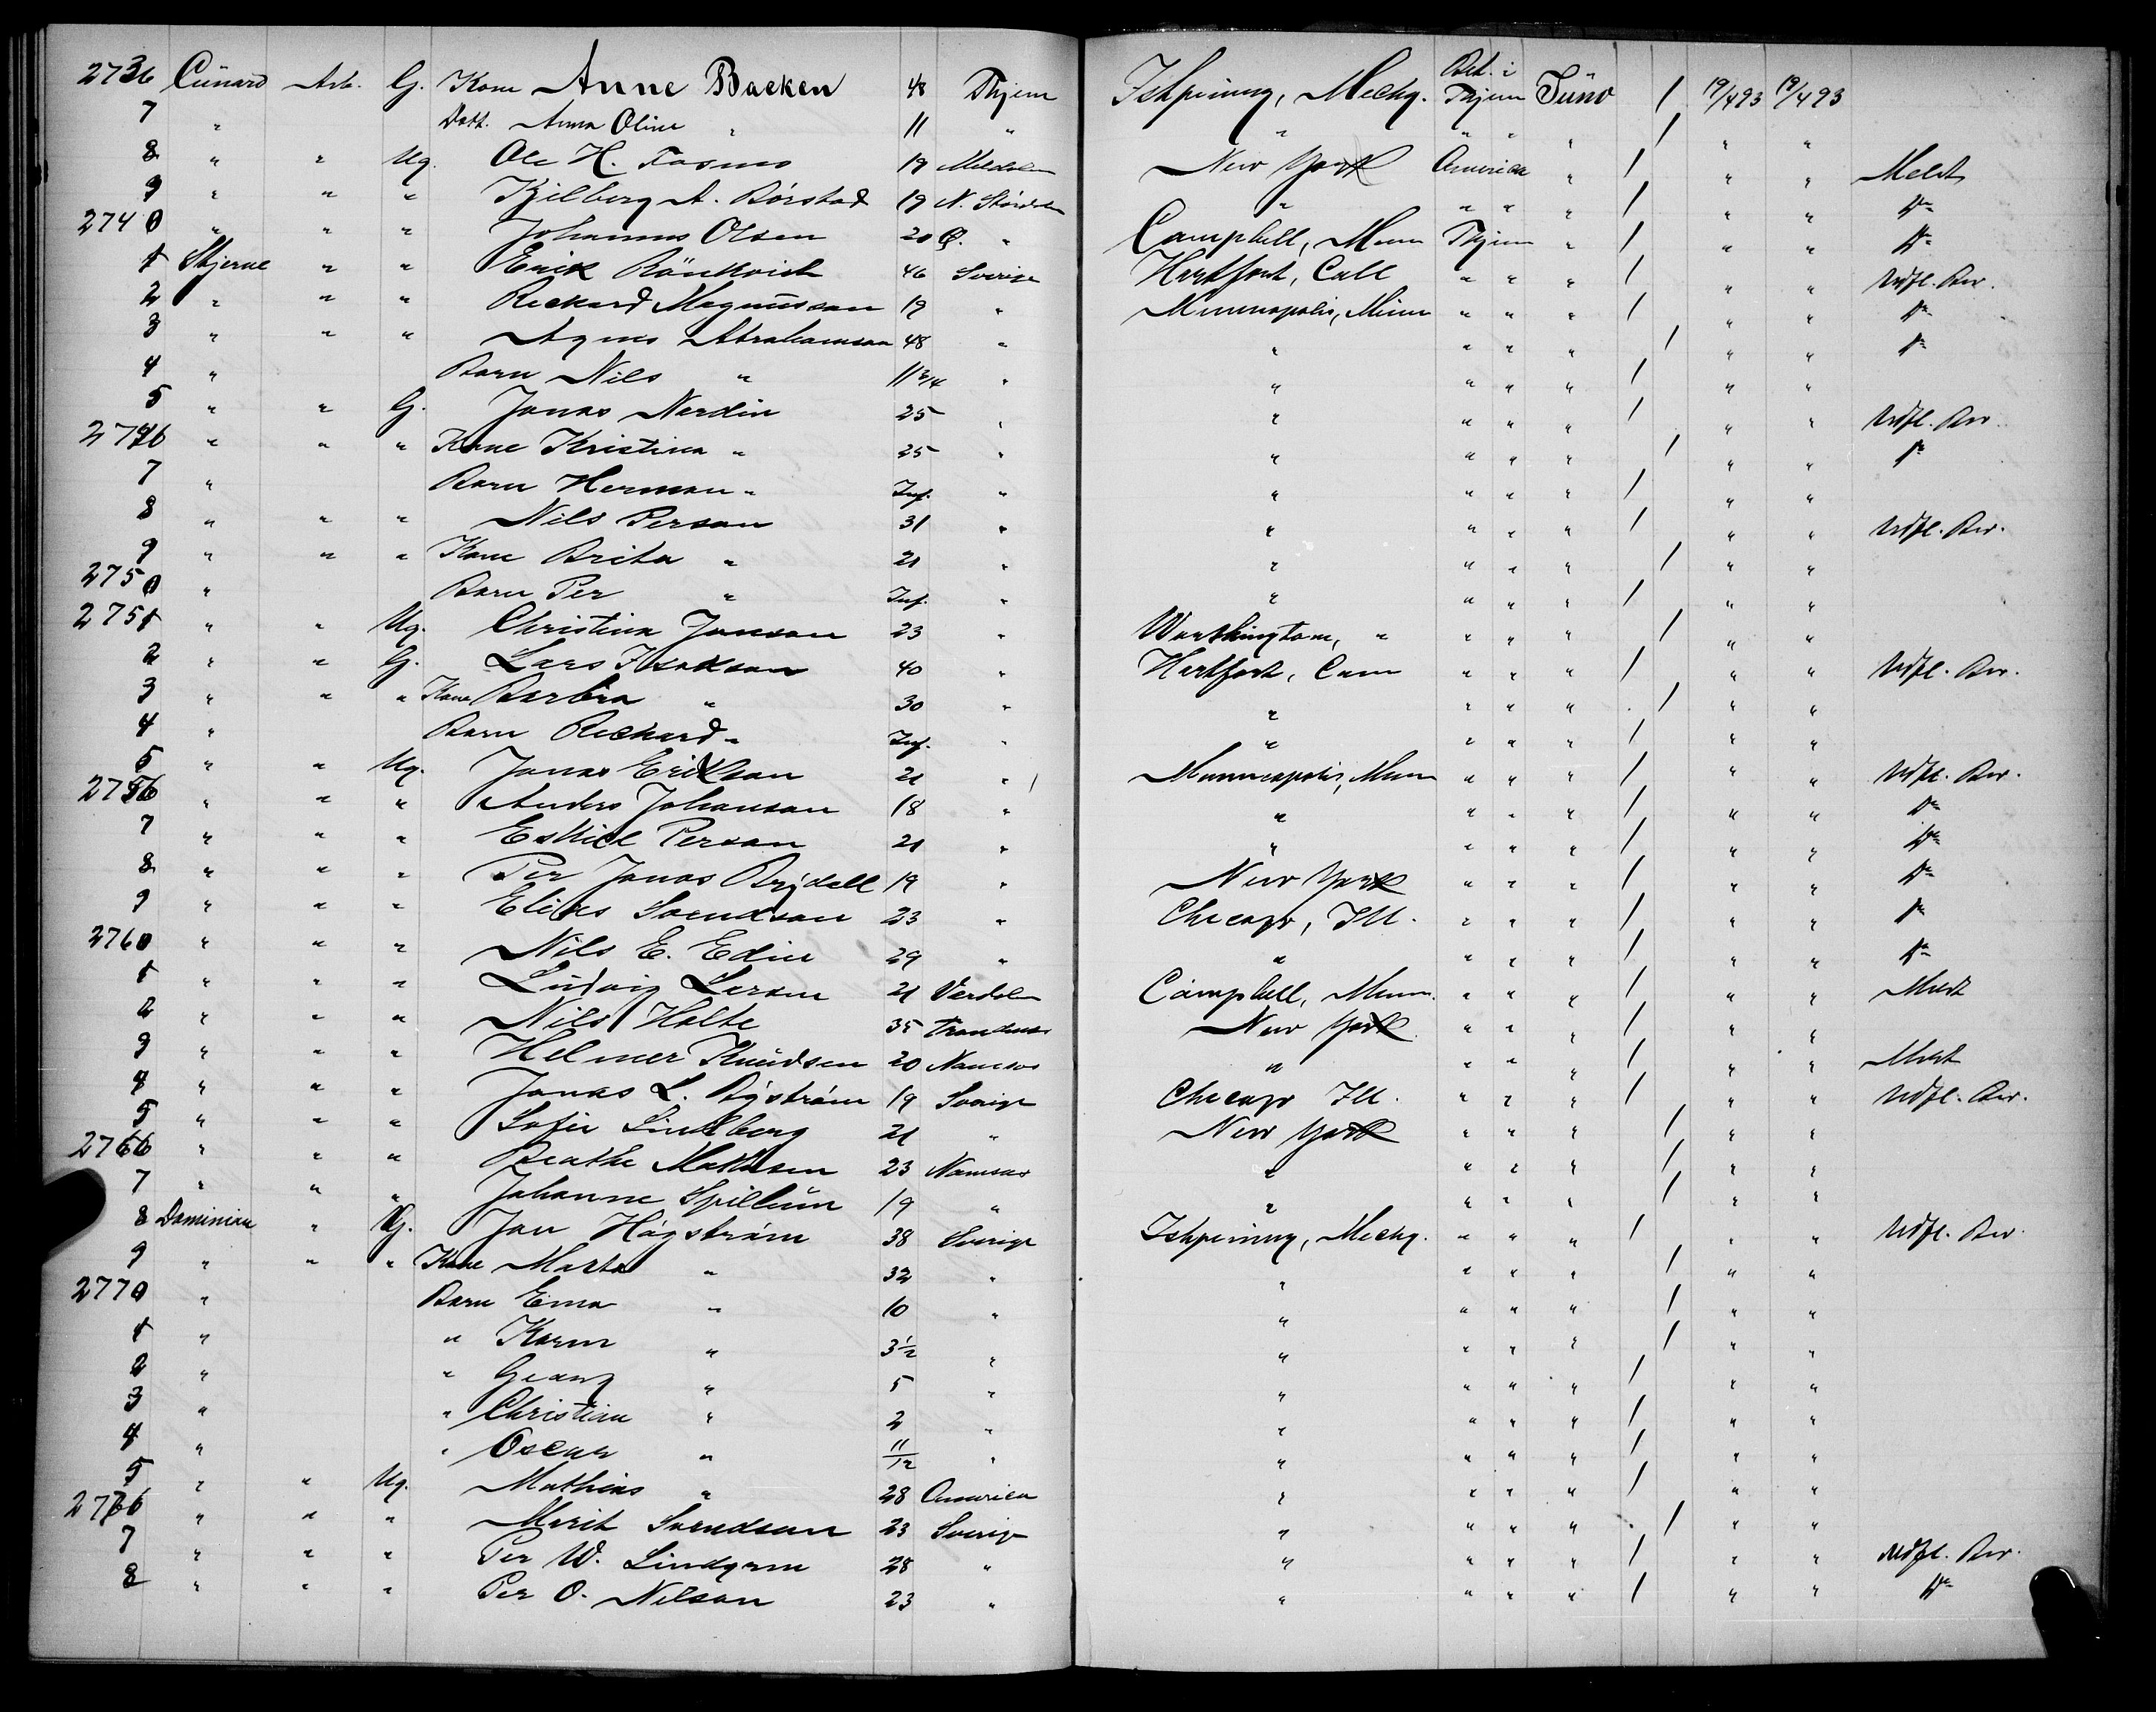 2736 Cunard Arb. G. Kone Anne Backen 48 Thjem Ishpiming, Mechg. Bet. i Thjem Juno / 19/4 93 19/4 93
7 " Datt. Anna Oline " 11 " " " " " / " "
8 " " Ug. Ole H. 19 New York America " / " " Meldt
9 " " " Kjelberg A. Börstad 19 N. " " " " / " " do
2740 " " " Johannes Olsen 20 Ø. " Campbell, Minn Thjem " / " " do
1 Skjerve " " Erick Rönkvist 46 Sverige Hartfort, " " " / " " Udfl. Bev.
2 " " " Rickard Magnusson 19 " Minneapolis, Minn " " " / " " do
3 " " " Agnes Abrahamson 48 " " " " " / " " do
4 " Barn Nils " 11 3/4 " " " " " / " "
5 " " G. Jonas Nordin 25 " " " " " / " " Udfl. Bev.
2746 " " " Kone Kristina " 25 " " " " " / " " do
7 " Barn Herman " Inf. " " " " " / " "
8 " " " Nils Person 31 " " " " " / " " Udfl. Bev.
9 " " " Kone Brita " 21 " " " " " / " "
2750 " Barn Per " Inf. " " " " " / " "
2751 " " Ug. Christina Jonson 23 " Worthington, " " " " / " "
2 " " G. Lars Isakson 40 " Hartfort, Conn " " " / " " Udfl. Bev.
3 " " " Kone Barbra " 30 " " " " " / " "
4 " Barn Rickard " Inf. " " " " " / " "
5 " " Ug. Jonas Erikson 21 " Minneapolis, Minn " " " / " " Udfl. Bev.
2756 " " " Anders Johanson 18 " " " " " / " " do
7 " " " Eskiel Person 21 " " " " " / " " do
8 " " " Per Jonas Brydell 19 " New York " " " / " " do
9 " " " Elias Svendson 23 " Chicago, Ill. " " " / " " do
2760 " " " Nils E. Edin 29 " " " " " / " " do
1 " " " Ludvig Larsen 21 Verdalen Campbell, Minn. " " " / " " Meldt
2 " " " Nils Holte 35 New York " " " / " "
3 " " " Helmer Knudsen 20 Namsos " " " " / " " Meldt
4 " " " Jonas L. Bÿström 19 Sverige Chicago Ill. " " " / " " Udfl. Bev.
5 " " " Sofie Lindberg 21 " New York " " " / " "
2766 " " " Beathe Mathisen 23 Namsos " " " " / " "
7 " " " Johanne Spillum 19 " " " " " / " "
8 Dominion " G. Jon Högström 38 Sverige Ishpiming, Mechg. " " " / " " Udfl. Bev.
9 " " " Kone Marta " 32 " " " " " / " "
2770 " Barn Erna " 10 " " " " " / " "
1 " " Karin " 3 1/2 " " " " " / " "
2 " " Georg " 5 " " " " " / " "
3 " " Christian " 2 " " " " " / " "
4 " " Oscar " 11/12 " " " " " / " "
5 " " Ug. Mathias " 28 America " " " " / " "
2776 " " " Marit Svendson 23 Sverige " " " " / " "
7 " " " Per W. Lindgren 28 " " " " " / " " Udfl. Bev.
8 " " " Per O. Nilson 23 " " " " " / " " do